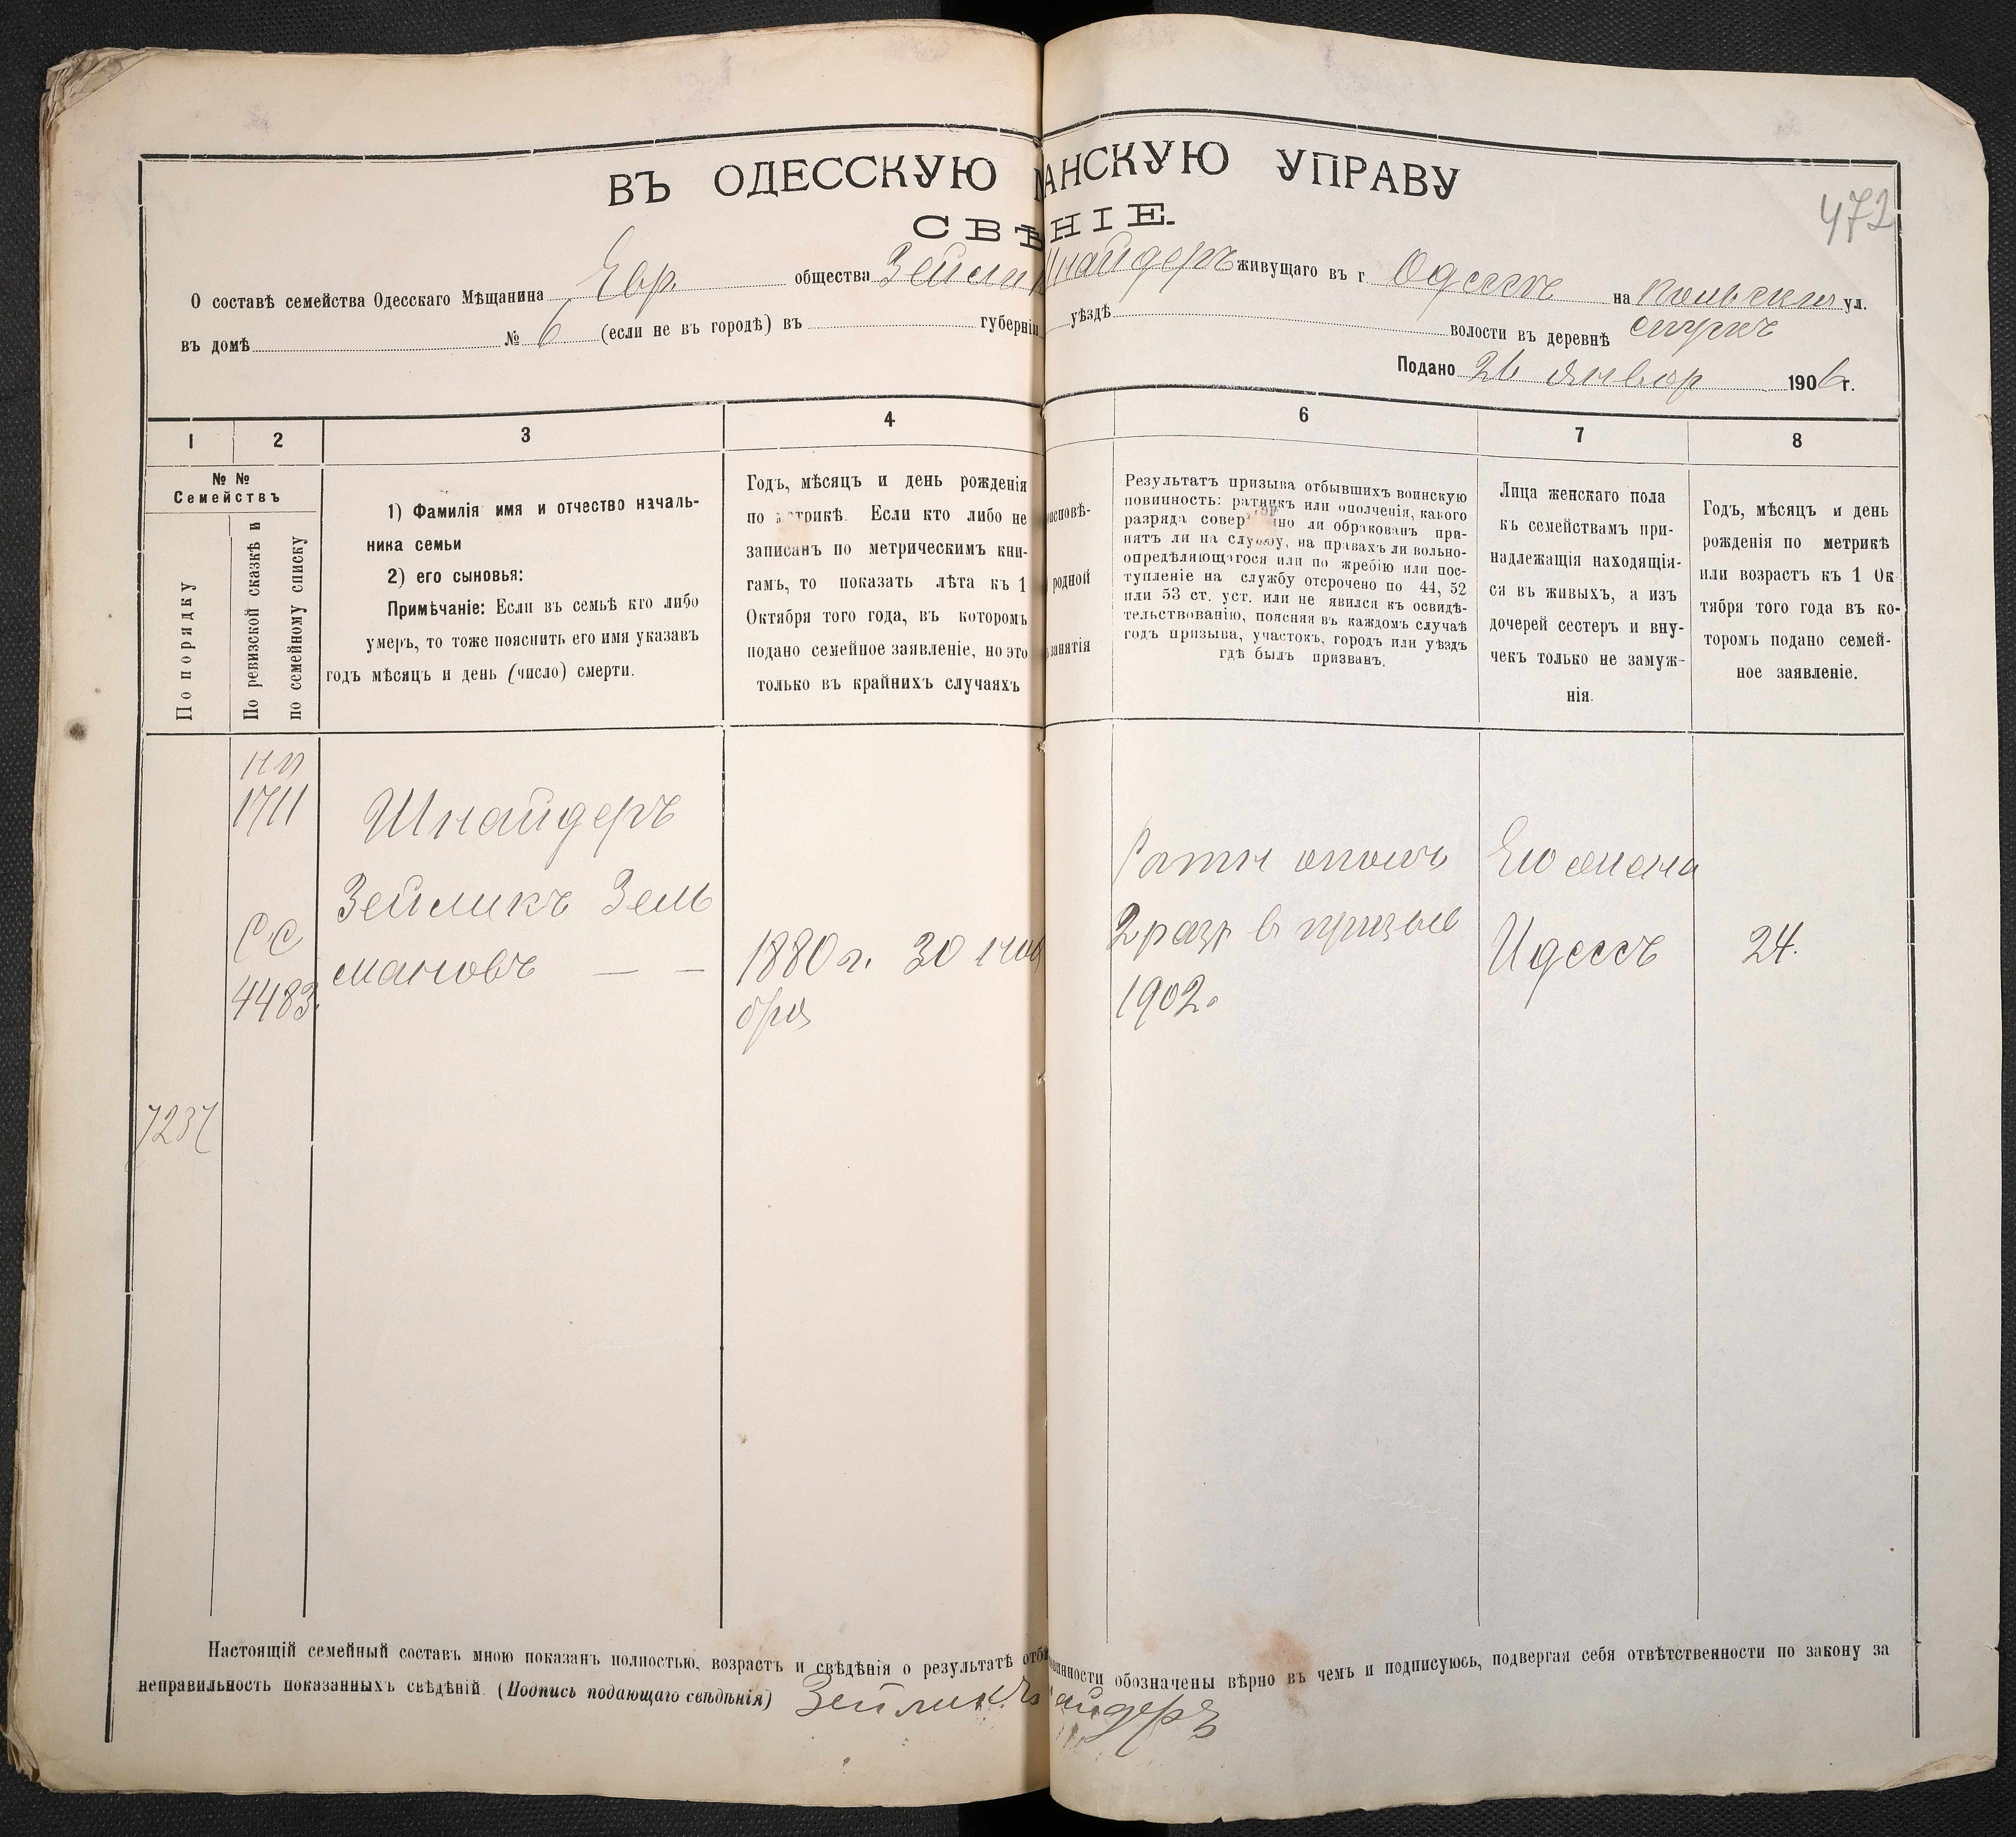 ВЪ ОДЕССКУЮ АНСКУЮ УПРАВУ
СВѢНІЕ.
472
О составѣ семейства Одесскаго Мѣщанина Евр. общества Зейлик Шнайдеръ живущаго въ г Одессѣ на Польскій ул.
спускъ
въ домѣ № 6 (если не въ городѣ) въ губерніи уѣздѣ волости въ деревнѣ
Подано 26 Январ 1906 г.
1 2 3 4 6 7 8
№ № Семействъ
По порядку
По ревизской сказкѣ и
по семейному списку
1) Фамилія имя и отчество началь-
ника семьи
2) его сыновья:
Примѣчаніе: Если въ семьѣ кто либо
умеръ, то тоже пояснить его имя указавъ
годъ мѣсяцъ и день (число) смерти.
Годъ, мѣсяцъ и день рожденія
по метрикѣ. Если кто либо не
записанъ по метрическимъ кни-
гамъ, то показать лѣта къ 1
Октября того года, въ которомъ
подано семейное заявленіе, но это
только въ крайнихъ случаяхъ
исповѣ-
родной
занятія
Результатъ призыва отбывшихъ воинскую
повинность: ратникъ или ополченія, какого
разряда совершенно ли обракованъ при-
нятъ ли на службу, на правахъ ли вольно-
опредѣляющагося или по жребію или пос-
тупленіе на службу отсрочено по 44, 52
или 53 ст. уст. или не явился къ освидѣ-
тельствованію, поясняя въ каждомъ случаѣ
годъ призыва, участокъ, городъ или уѣздъ
гдѣ былъ призванъ.
Лица женскаго пола
къ семействамъ при-
надлежащія находящія-
ся въ живыхъ, а изъ
дочерей сестеръ и вну-
чекъ только не замуж-
нія.
Годъ, мѣсяцъ и день
рожденія по метрикѣ
или возрастъ къ 1 Ок
тября того года въ ко-
торомъ подано семей-
ное заявленіе.
1711
Шнайдеръ
Зейликъ Зель
мановъ — —
СС
4483.
1880 г. 30 нояб
бря
Ратн ополч
2 разр в призыв
1902.
Его жена
Идессъ
24.
7237
Настоящій семейный составъ мною показанъ полностью, возрастъ и свѣдѣнія о результатѣ отбы винности обозначены вѣрно въ чемъ и подписуюсь, подвергая себя отвѣтственности по закону за
неправильность показанныхъ свѣдѣній. (Подпись подающаго свѣдѣнія) Зейликъ айдеръ